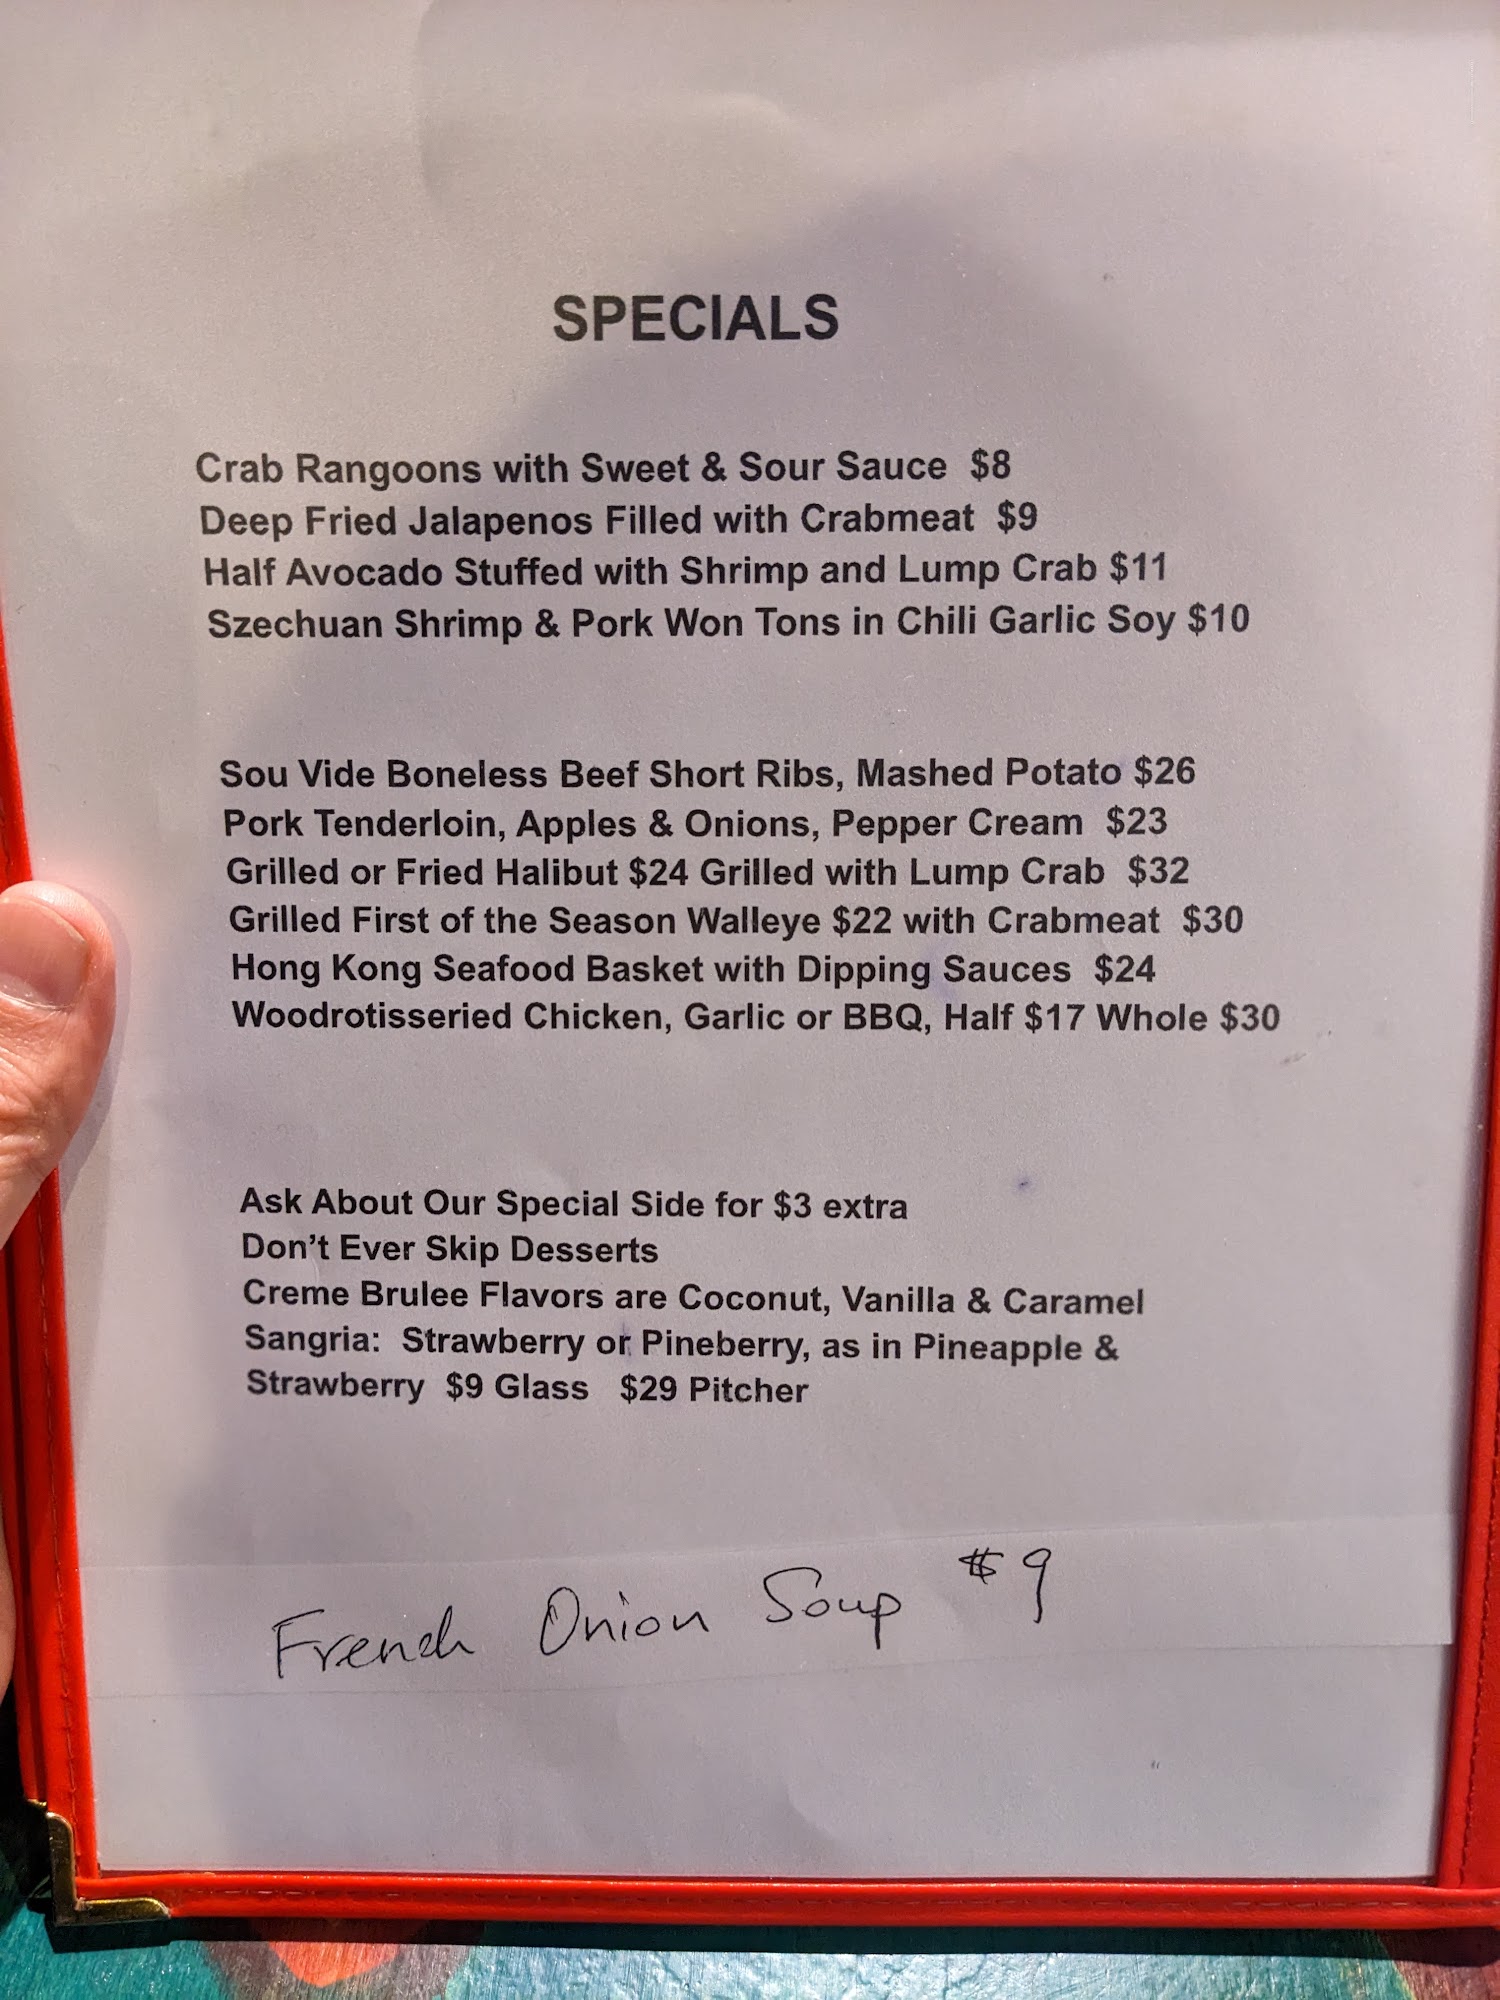 SPECIALS
Crab Rangoons with Sweet & Sour Sauce $8
Deep Fried Jalapenos Filled with Crabmeat $9
Half Avocado Stuffed with Shrimp and Lump Crab $11
Szechuan Shrimp & Pork Won Tons in Chili Garlic Soy $10
Sou Vide Boneless Beef Short Ribs, Mashed Potato $26
Pork Tenderloin, Apples & Onions, Pepper Cream $23
Grilled or Fried Halibut $24 Grilled with Lump Crab $32
Grilled First of the Season Walleye $22 with Crabmeat $30
Hong Kong Seafood Basket with Dipping Sauces $24
Woodrotisseried Chicken, Garlic or BBQ, Half $17 Whole $30
Ask About Our Special Side for $3 extra
Don’t Ever Skip Desserts
Creme Brulee Flavors are Coconut, Vanilla & Caramel
Sangria: Strawberry or Pineberry, as in Pineapple &
Strawberry $9 Glass $29 Pitcher
French Onion Soup $9